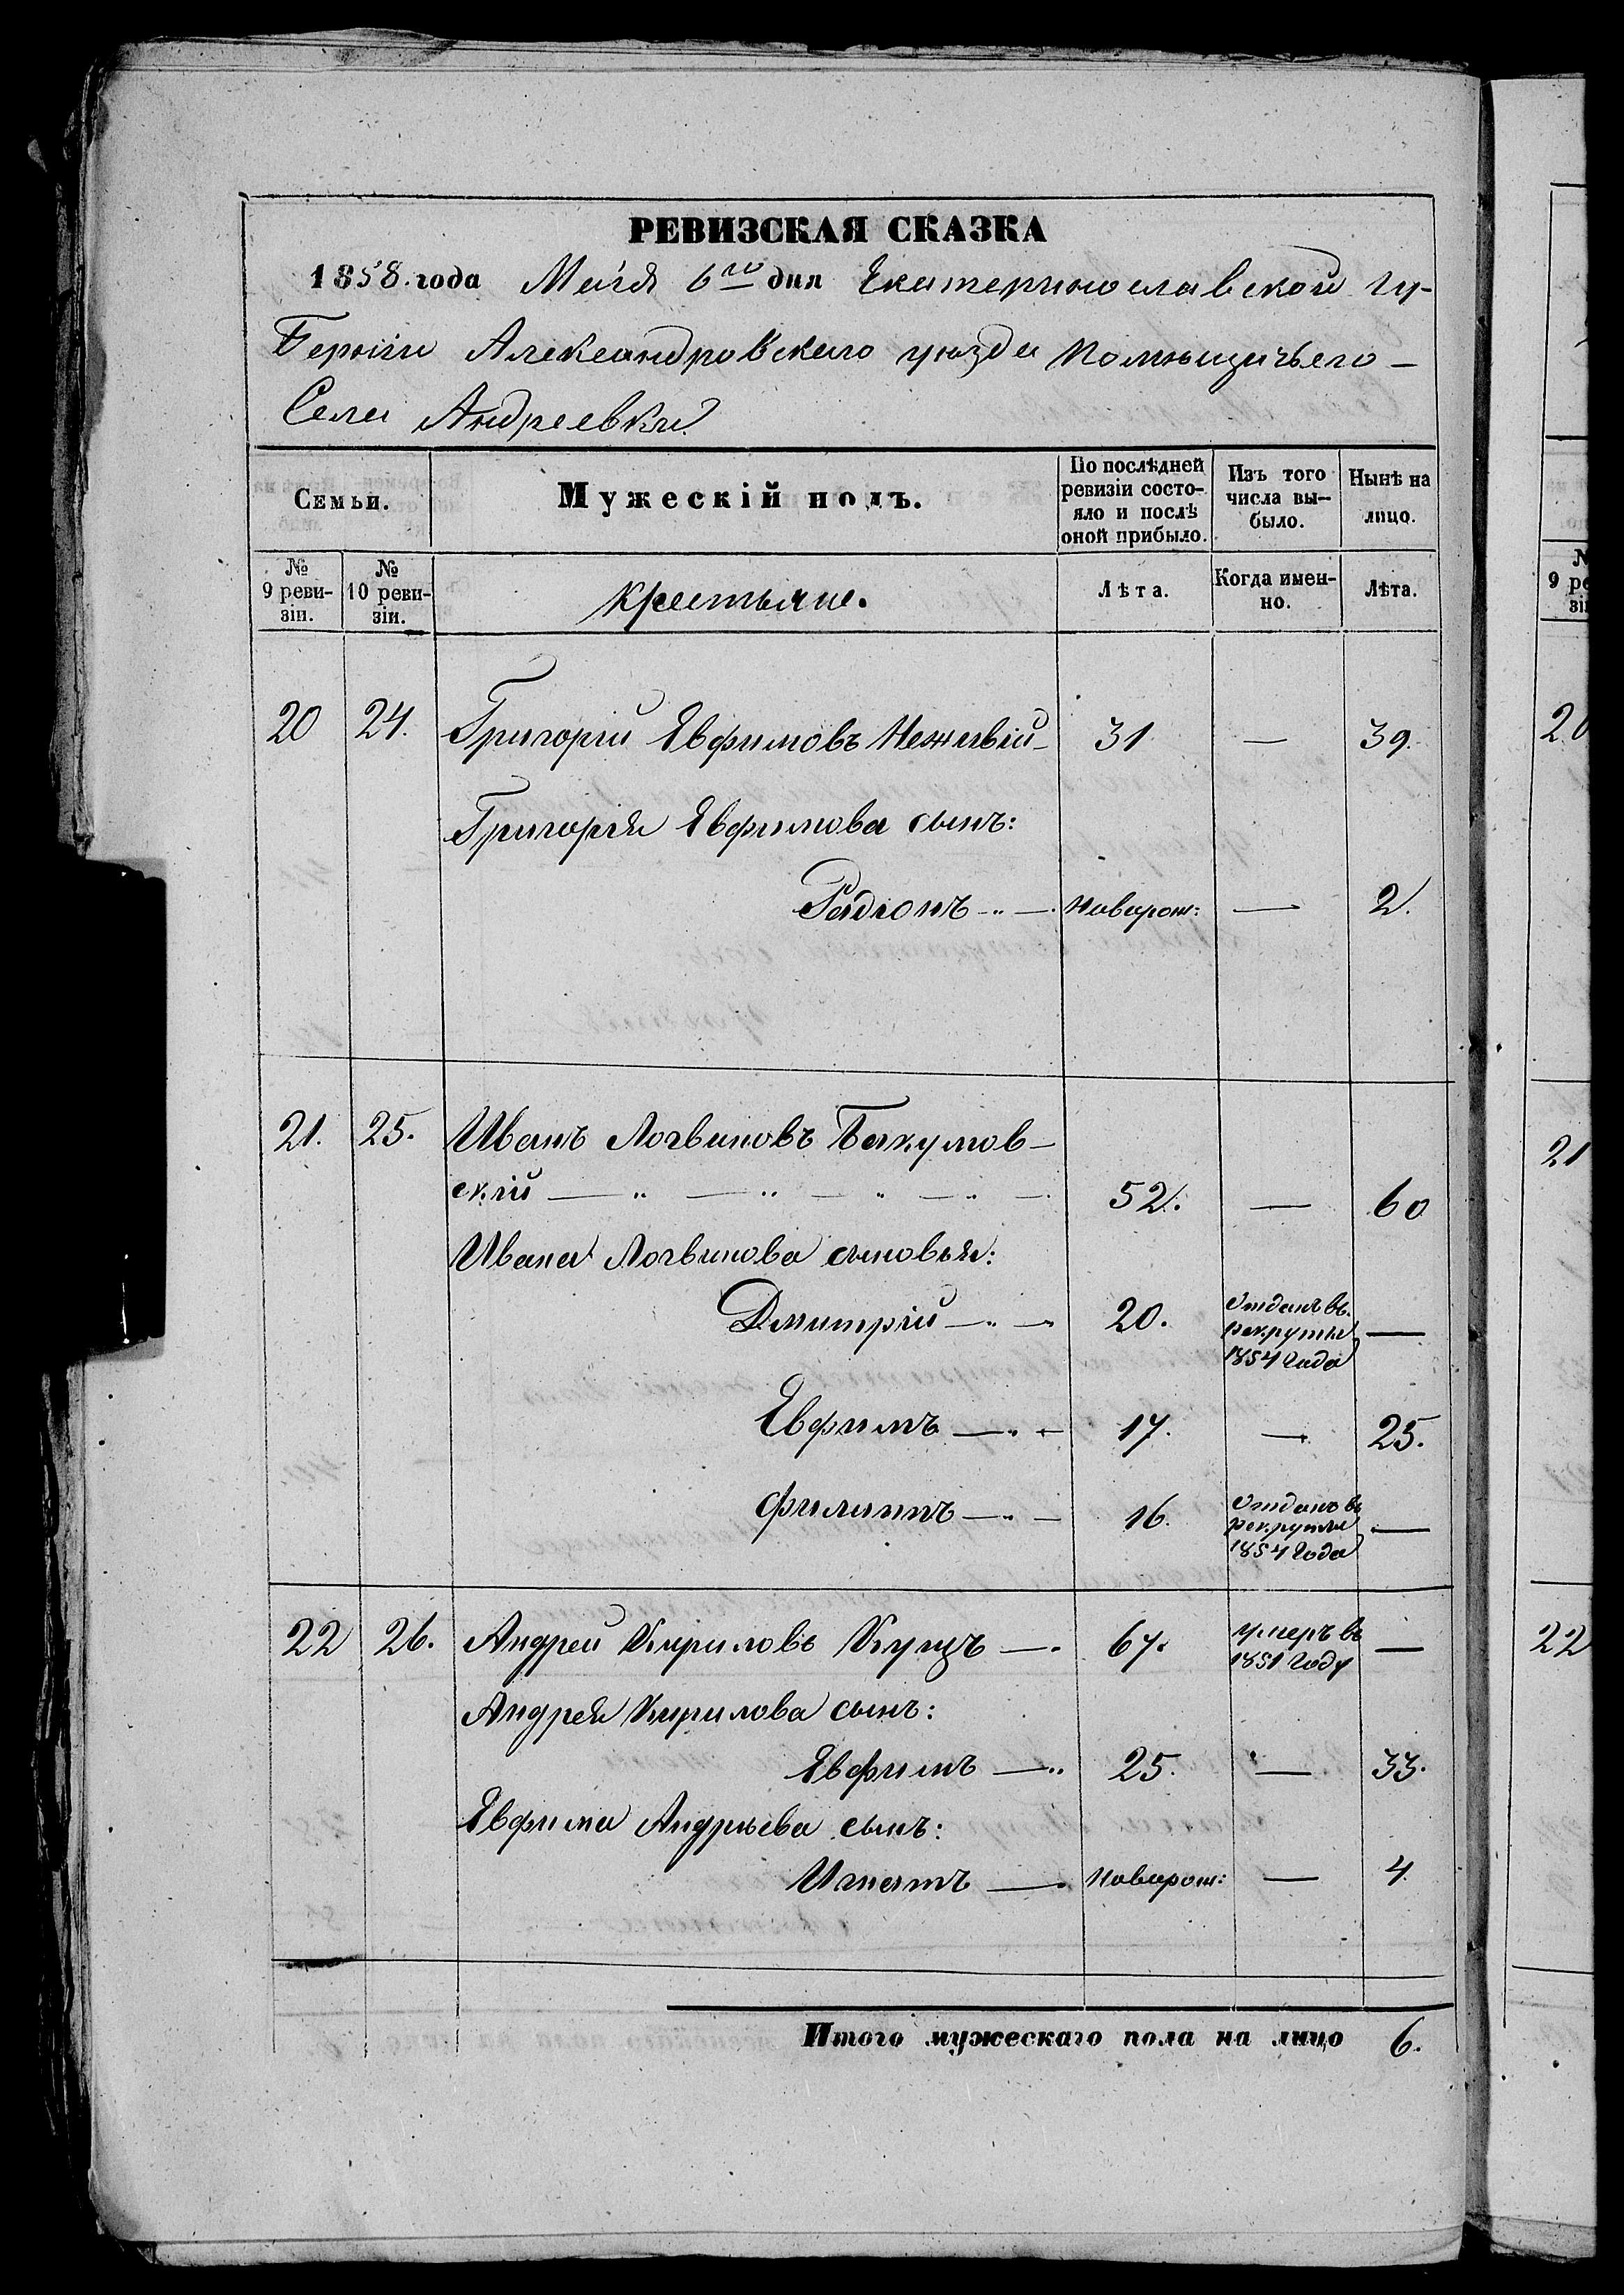 РЕВИЗСКАЯ СКАЗКА
1858 года Маія 6го дня Екатеринославской гу-
берніи Александровскаго уѣзда помѣщичьего
Села Андреевки
Семьи. Мужескій полъ. По послѣдней ревизіи состо-яло и послѣ оной прибыло. Изъ того числа вы-было. Нынѣ на лицо.
№ 9 реви-зіи. № 10 реви-зіи. крестьяне. Лѣта. Когда имен-но. Лѣта.
20 24. Григорій Евфимовъ Неживій 31 — 39.
Григорія Евфимова сынъ:
Радіонъ — новорож: — 2.
21. 25. Иванъ Логвиновъ Бакумов-
скій — 52. — 60
Ивана Логвинова сыновья:
Дмитрій — 20. Отданъ въ рекруты 1854 года —
Евфимъ — 17. — 25.
Филиппъ — 16. Отданъ въ рекруты 1854 года —
22 26. Андрей Кириловъ Куцъ — 67. умеръ въ 1851 году —
Андрея Кирилова сынъ:
Евфимъ — 25. — 33.
Евфима Андрѣева сынъ:
Игнатъ — новорож: — 4.
Итого мужескаго пола на лицо 6.
№
9 ре
зі
20
21
22